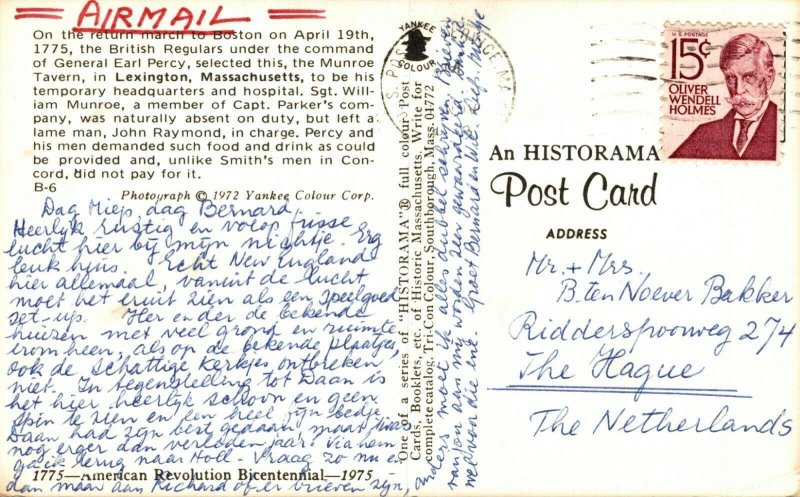 AIRMAIL
On the return march to Boston on April 19th,
1775, the British Regulars under the command
of General Earl Percy, selected this, the Munroe
Tavern, in Lexington, Massachusetts, to be his
temporary headquarters and hospital. Sgt. Wil-
liam Munroe, a member of Capt. Parker's com-
pany, was naturally absent on duty, but left a
lame man, John Raymond, in charge. Percy and
his men demanded such food and drink as could
be provided and, unlike Smith's men in Con-
cord, did not pay for it.
B-6
Photograph © 1972 Yankee Colour Corp.
Dag Miep, dag Bernard,
Heerlijk rustig en volop frisse
lucht hier bij mijn nichtje. Erg
leuk huis. Echt New England
hier allemaal, vanuit de lucht
moet het eruit zien als een speelgoed
set-up. Her en der de bekende
huizen met veel grond en ruimte
erom heen, als op de bekende plaatjes,
ook de schattige kerkjes ontbreken
niet. In tegenstelling tot Daan is
het hier heerlijk schoon en geen
spin te zien en een heel fijn bedje.
Daan had zijn best gedaan maar
nog erger dan verleden jaar. Via hem
ga ik terug naar Holl. Vraag zo nu en
dan maar aan Richard of er brieven zijn,
1775—American Revolution Bicentennial—1975
anders moet ik alles dubbel schrijven,
van jou aan mij worden zeer gewaardeerd
wel voor die ene. Groet Bernard en Wil. Liefs,
One of a series of "HISTORAMA"® full colour Post
Cards, Booklets, etc. of Historic Massachusetts. Write for
complete catalog, Tri-Con Colour, Southborough, Mass. 01772
YANKEE
COLOUR
An HISTORAMA
Post Card
ADDRESS
U.S. POSTAGE
15¢
OLIVER
WENDELL
HOLMES
Mr. + Mrs.
B. Ten Noever Bakker
Ridderspoorweg 274
The Hague
The Netherlands